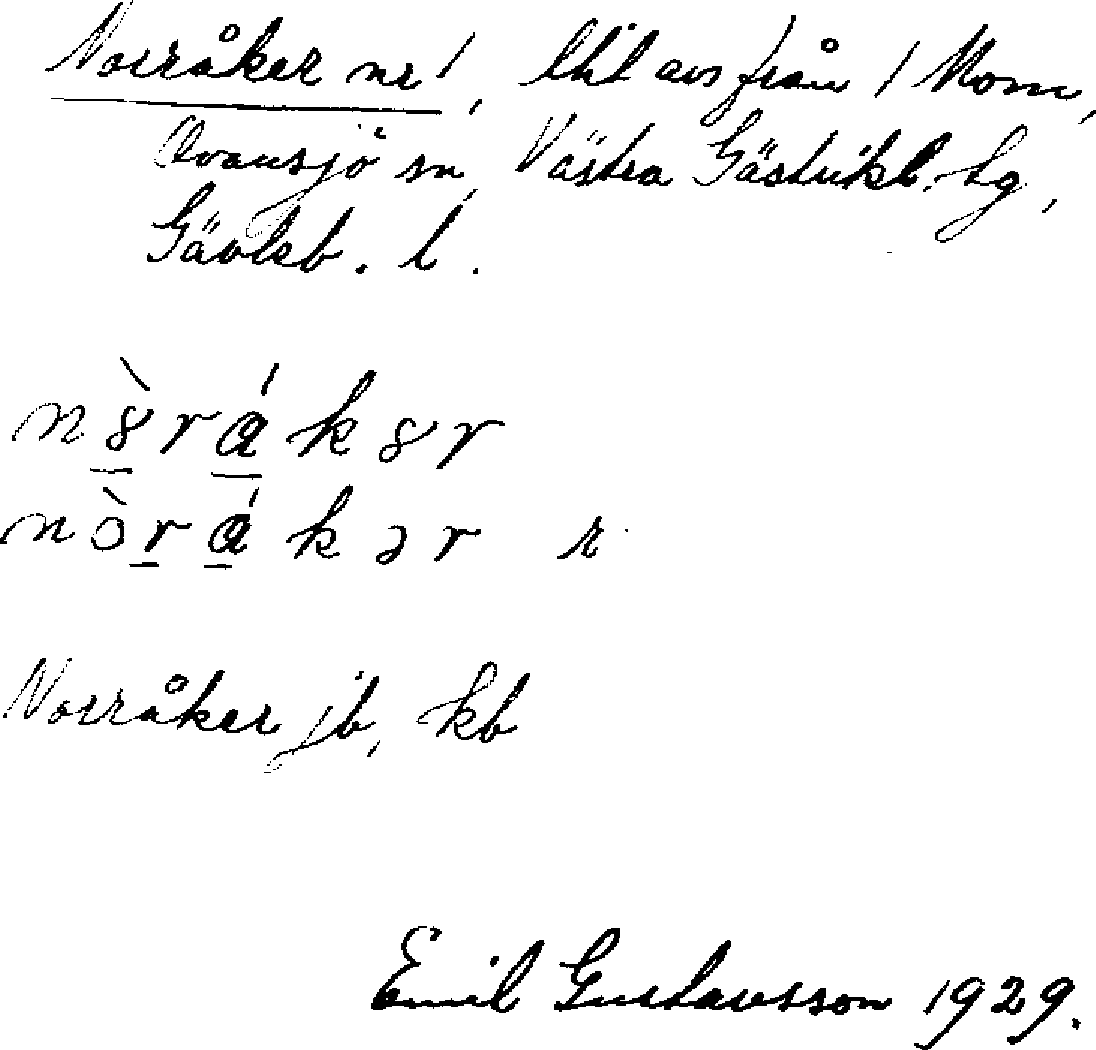 Norråker nr 1, lht avs från 1 Mom,
Ovansjö sn, Västra Gästrikl. tg,
Gävleb. l.
n ò r á k ə r r
Norråker jb, kb
Emil Gustavsson 1929.